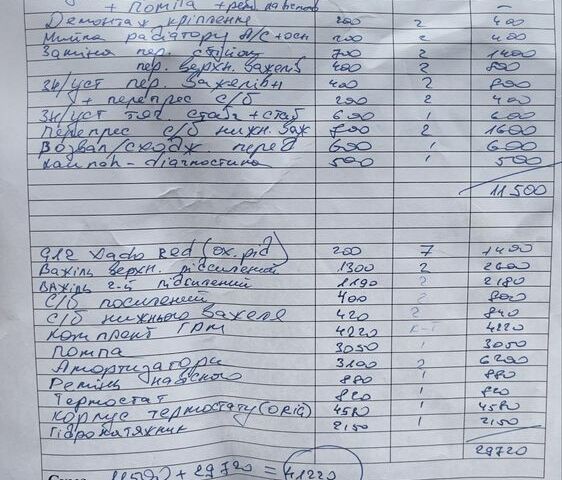 + Помпа + рем навісного
Демонтаж кріплення 200 2 400
Мийка радіатору А/С + осн 200 2 400
Заміна пер. стійок 700 2 1400
пер. верхн. важелів 400 2 800
Зн/уст пер. важелів н 400 2 800
+ перепрес с/б 200 2 400
Зн/уст тяг стаб + стаб 600 1 600
Перепрес с/б нижн. важ 800 2 1600
Розвал/сходж перед 600 1 600
діагностика 500 1 500
11500
G12 Dado Red (ох.рід) 200 7 1400
Важіль верхн. підсилений 1300 2 2600
Важіль підсилений 1190 2 2180
С/б посилений 400 2 800
С/б нижнього важеля 420 2 840
Комплект ГРМ 4220 к-т 4220
Помпа 3050 1 3050
Амортизатори 3100 2 6200
Ремінь навісного 880 1 880
Термостат 820 1 820
Корпус термостату (ОРИG) 4580 1 4580
Гідронатяжник 2150 1 2150
29720
11500 + 29720 = 41220